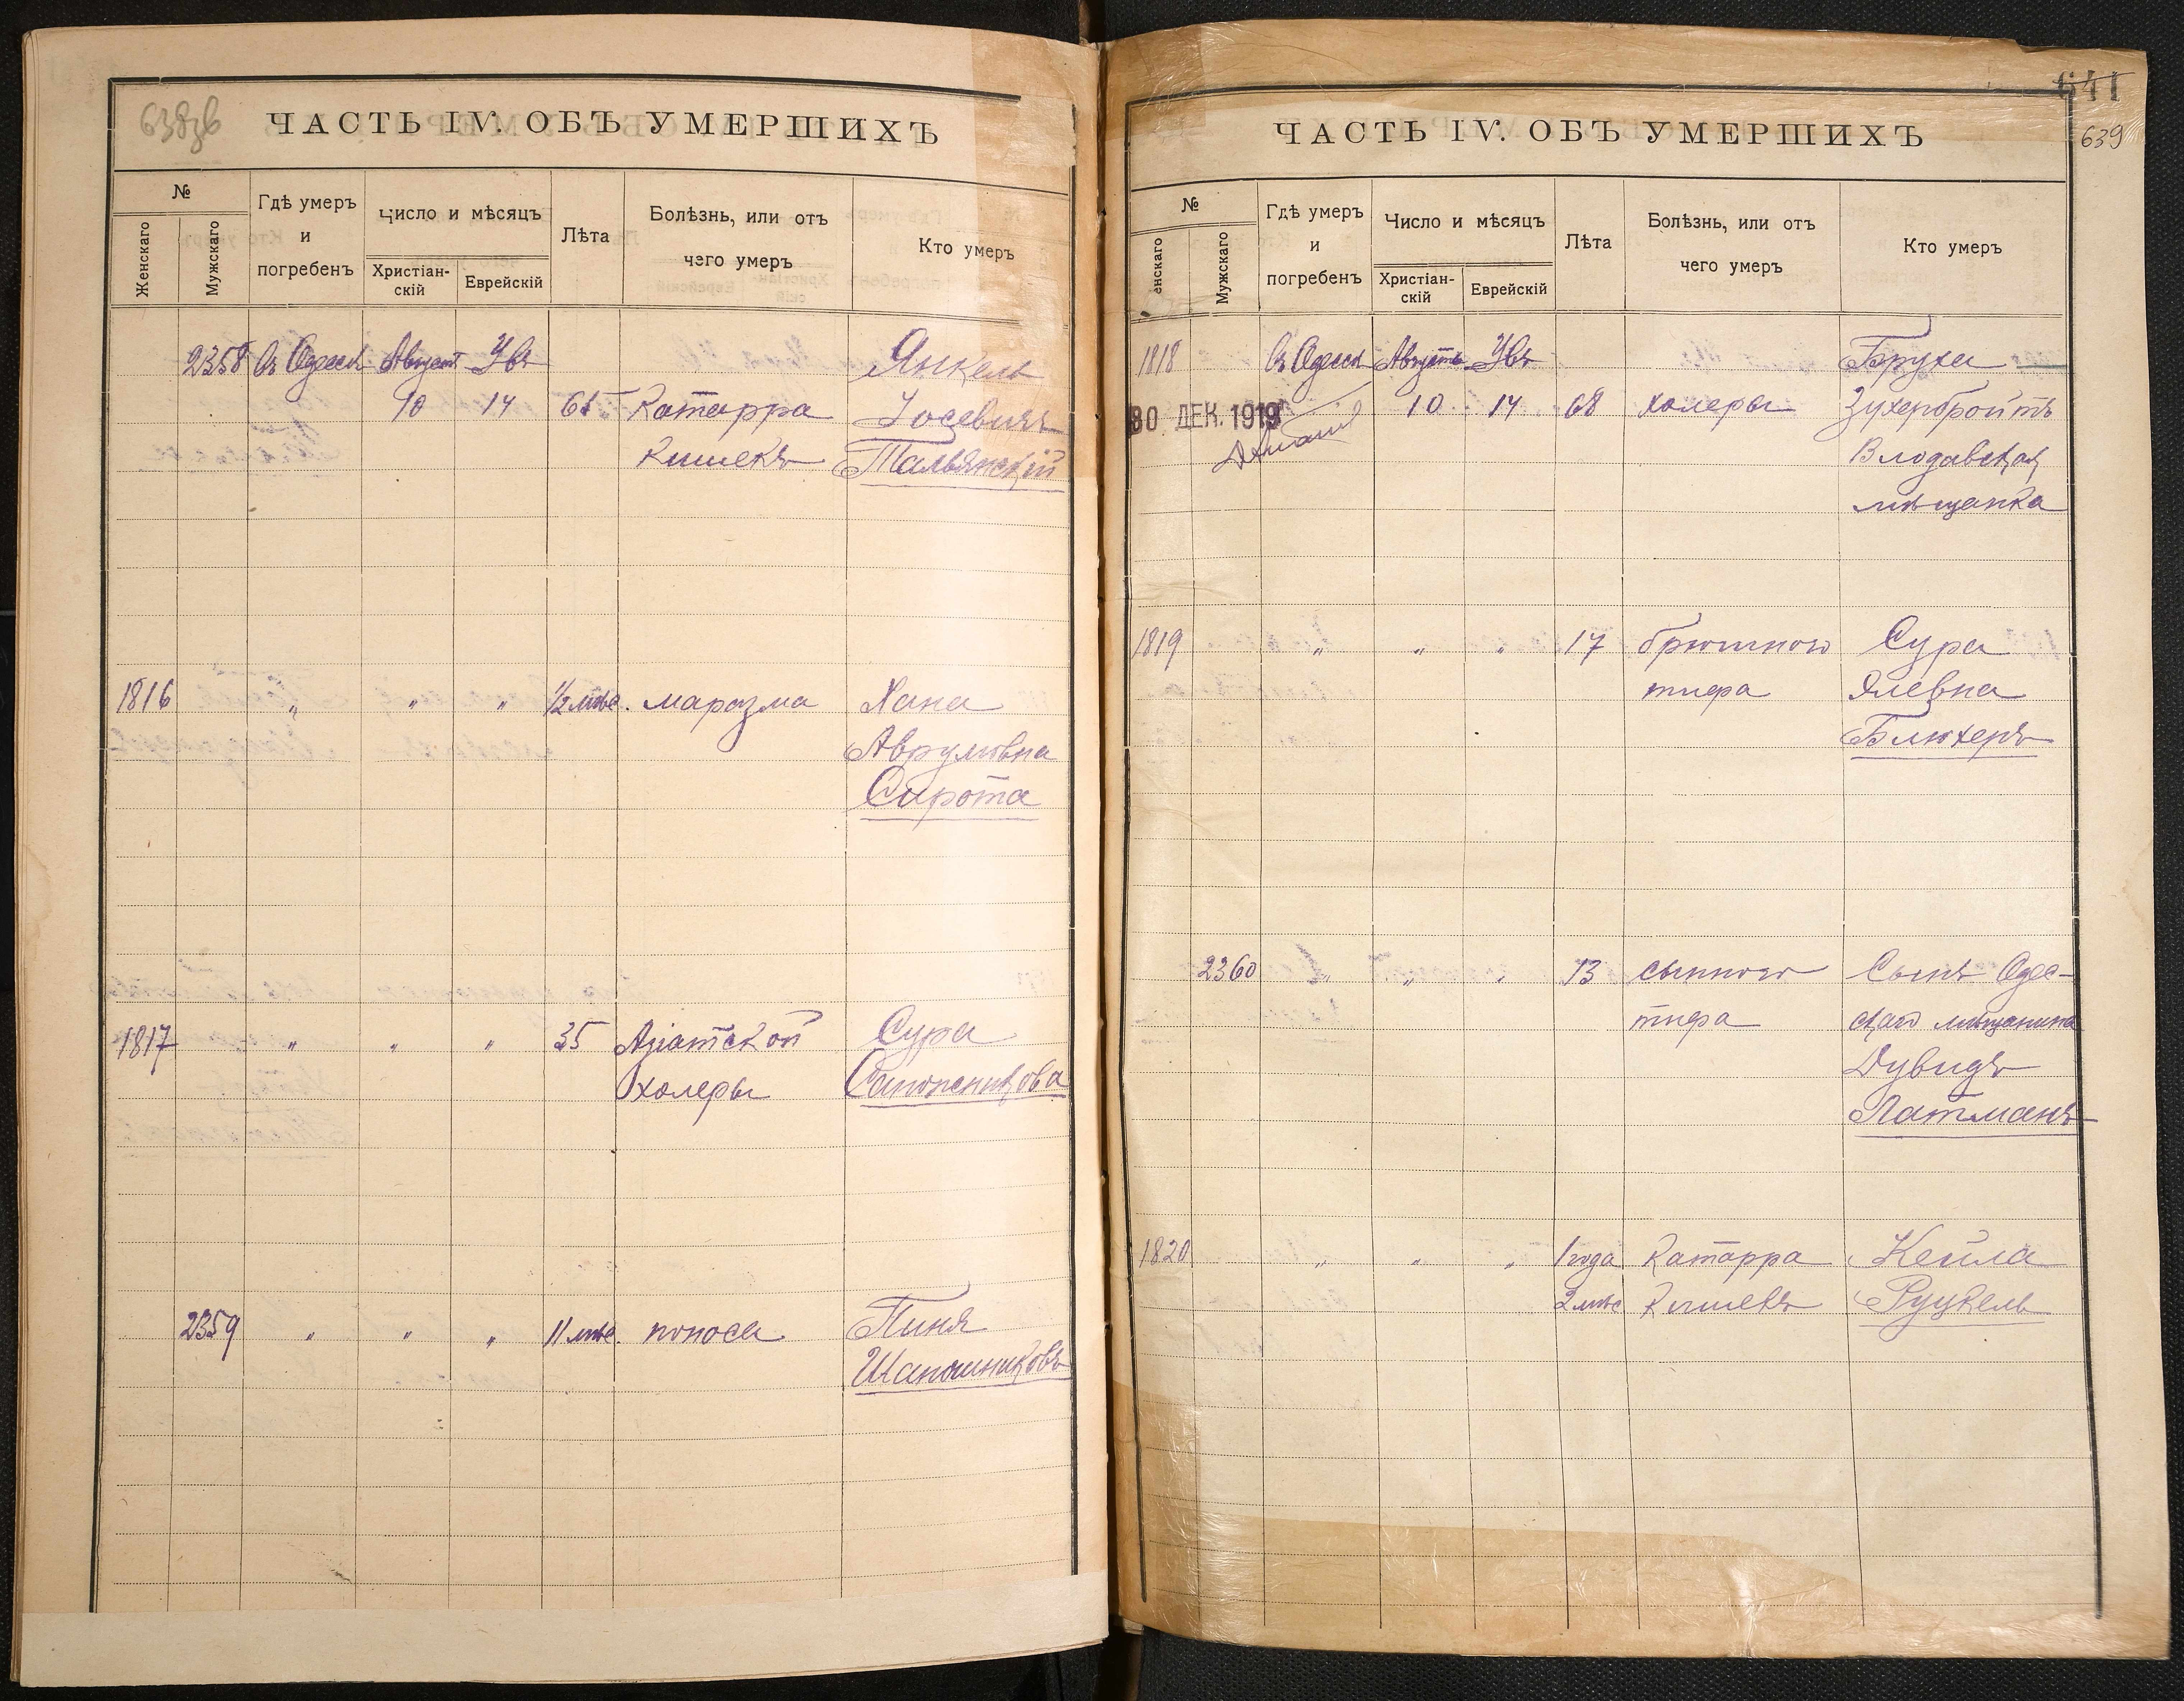 638об
ЧАСТЬ IV. ОБЪ УМЕРШИХЪ
№
Женскаго
Мужскаго
Гдѣ умеръ
и
погребенъ
Число и мѣсяцъ
Христіан-
скій
Еврейскій
Лѣта
Болѣзнь, или отъ
чего умеръ
Кто умеръ
2358 въ Одессѣ Августъ Увъ Янкель
10 14 65 Катарра Іосевичъ
Кишекъ Тальянскій
1816 " " " 1/2 мѣс. маразма Хана
Аврумовна
Сирота
1817 " " " 35 Азіатской Сура
холеры Сапожникова
2359 " " " 11 мѣс. поноса Пиня
Шапошниковъ
641
639
ЧАСТЬ IV. ОБЪ УМЕРШИХЪ
№
енскаго
Мужскаго
Гдѣ умеръ
и
погребенъ
Число и мѣсяцъ
Христіан-
скій
Еврейскій
Лѣта
Болѣзнь, или отъ
чего умеръ
Кто умеръ
1818 въ Одессѣ Августъ Увъ Бруха
30 ДЕК. 1919 10 14 68 холеры Зухербройтъ
Влодавская
мѣщанка
1819 " " " 17 брюшного Сура
тифа Элевна
Блюхеръ
2360 " " " 13 сыпного Сынъ Одес-
тифа скаго мѣщанина
Дувидъ
Латманъ
1820 " " " 1 года Катарра Кейла
2 мѣс Кишекъ Руцкель